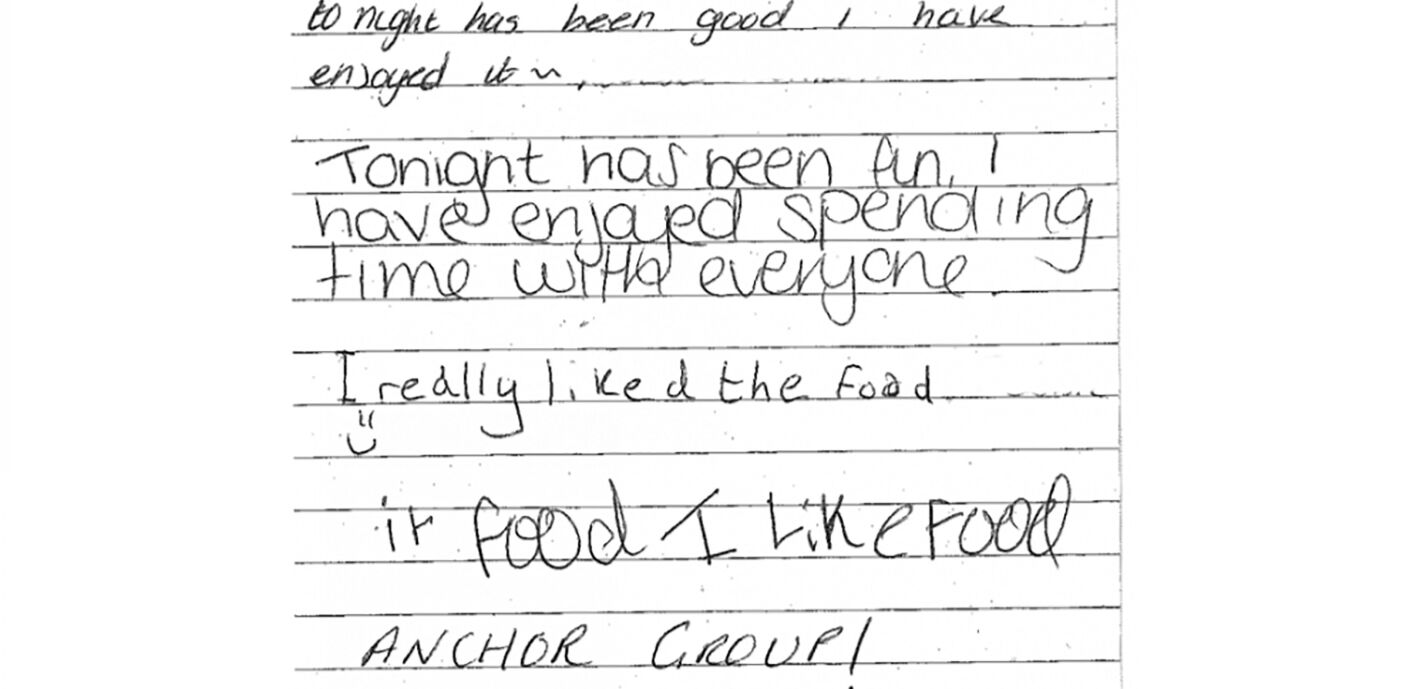 to night has been good I have
enjoyed it
Tonight has been fun, I
have enjoyed spending
time with everyone.
I really liked the Food
it food I Like Food
ANCHOR GROUP!